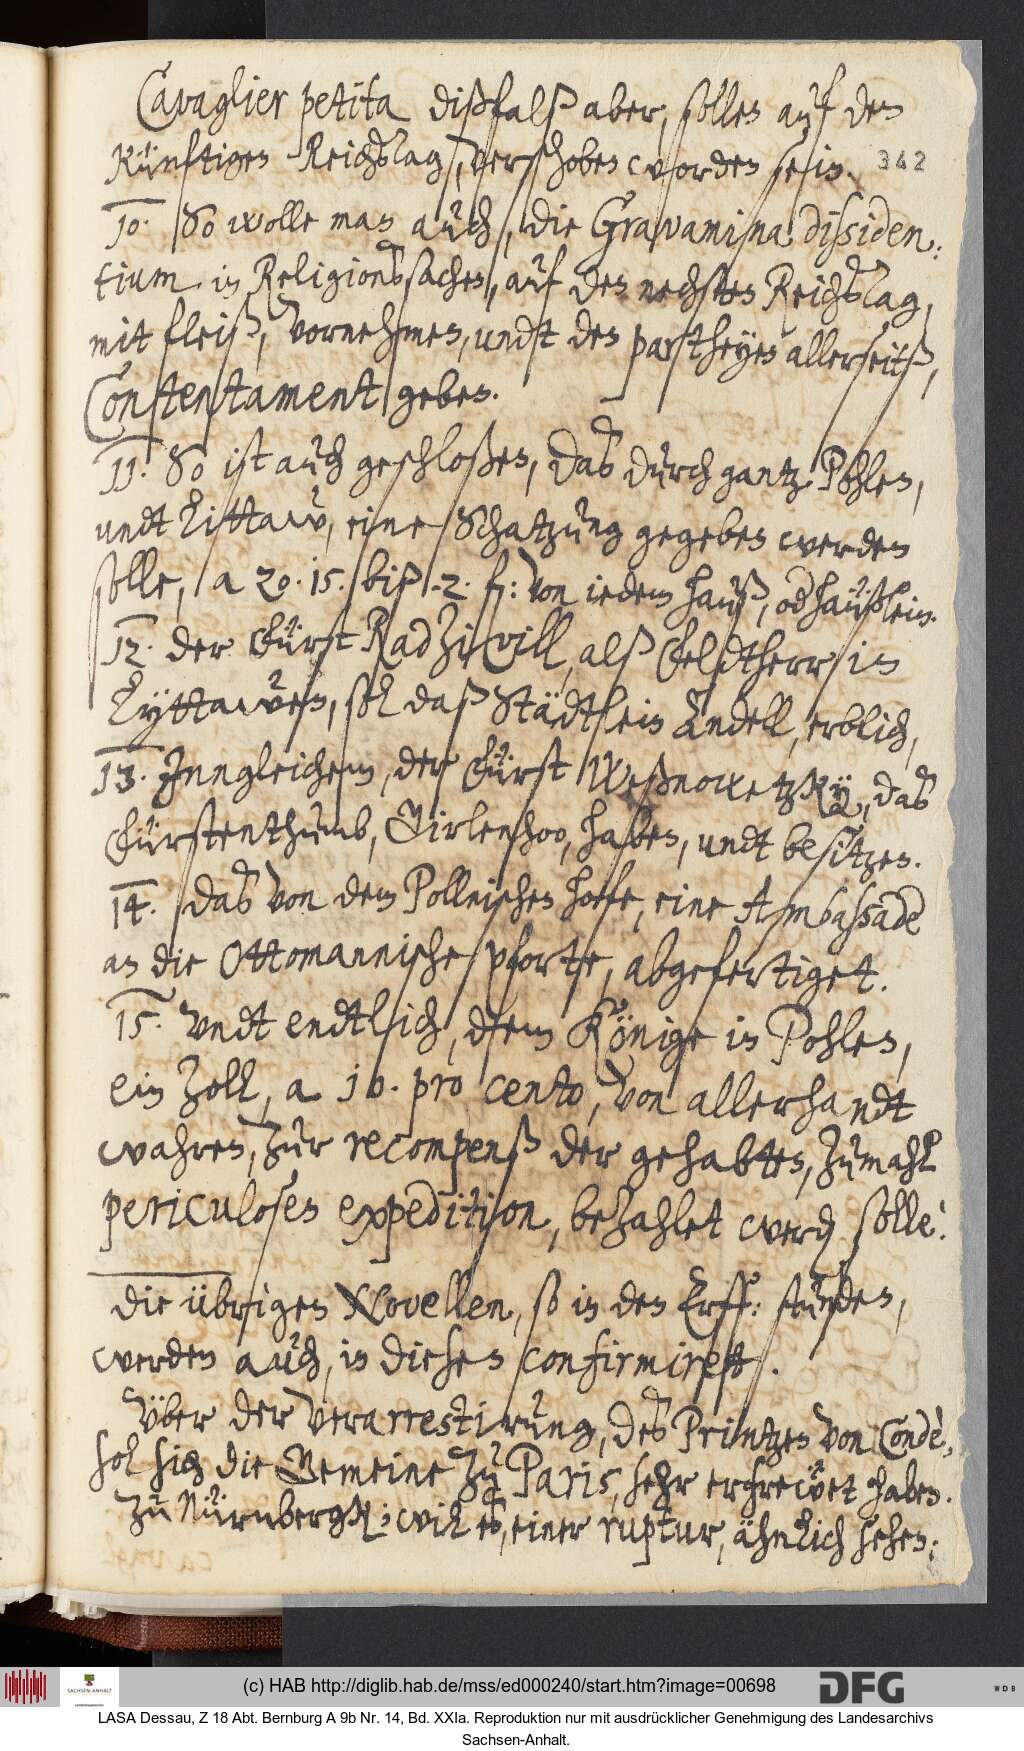 Cavaglier petita dißfalß aber, sollen auf den
Künftigen Reichstag, verschoben worden sein.
342
10. So wolle man auch, die Gravamina dissiden:
tium in Religionssachen, auf den nechsten Reichstag,
mit fleiß, vornehmen, undt den partheyen allerseitß,
Contentament geben.
11. So ist auch geschloßen, das durch gantz Pohlen,
undt Littaw, eine Schatzung gegeben werden
solle, a 20. 15. biß 2. fl: von iedem hauß, od häußlein.
12. der Fürst Radzivill, alß Feldtherr in
Lyttawen, sol daß Städtlein Zndell, erblich,
13. Inngleichem, der Fürst Weßnowetzky, das
Fürstenthumb, Birlenhoo, haben, undt besitzen.
14. das von dem Pollnischen hoefe, eine Ambassade
an die Ottomannische pforte, abgefertiget.
15. Undt endtlich, dem Könige in Pohlen,
ein Zoll, a 10. pro cento, von allerhandt
wahren, zur recompenß der gehabten, zumahl
periculosen expedition, bezahlet werd solle.
die übrigen Novellen, so in den Erff: stunden,
werden auch, in diesen confirmirett.
Über der verarrestirung, des Printzen von Condè,
sol sich die Gemeine zu Paris, sehr erfrewet haben.
Zu Nürnbergk: wil es, einer ruptur, ähnlich sehen:
(c) HAB http://diglib.hab.de/mss/ed000240/start.htm?image=00698
SACHSEN-ANHALT
DFG
WDB
LASA Dessau, Z 18 Abt. Bernburg A 9b Nr. 14, Bd. XXIa. Reproduktion nur mit ausdrücklicher Genehmigung des Landesarchivs
Sachsen-Anhalt.